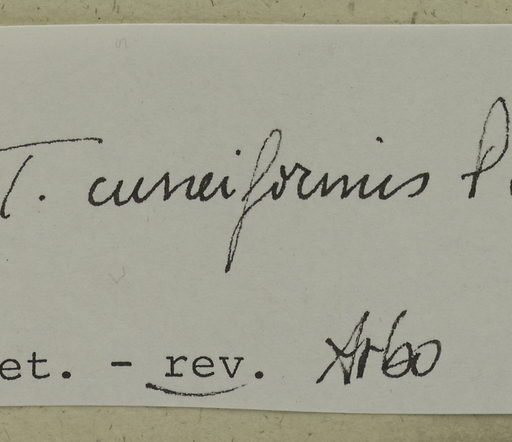 T. cuneiformis
et. - rev. Arbo